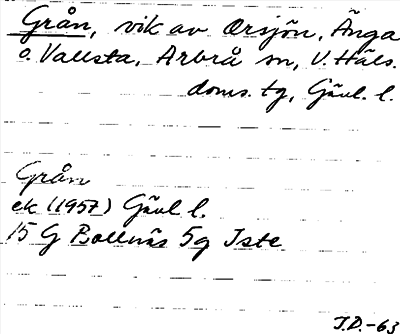 Grån, vik av Orsjön, Änga
o. Vallsta, Arbrå sn, V. Häls.
doms. tg, Gävl. l.
Grån
ek (1957) Gävl l.
15 G Bollnäs 5g Iste
J.D.-63